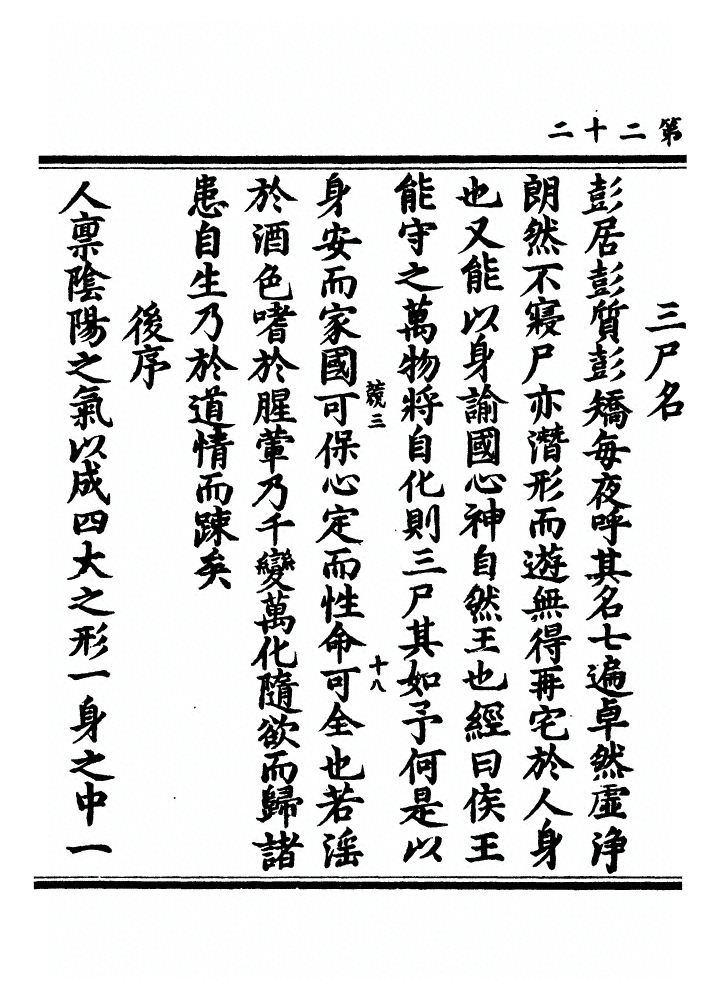 第二十二
三尸名
彭居彭質彭矯每夜呼其名七遍卓然虛淨
朗然不寢尸亦潛形而遊無得再宅於人身
也又能以身諭國心神自然王也經曰侯王
能守之萬物將自化則三尸其如予何是以
兢三
十八
身安而家國可保心定而性命可全也若淫
於酒色嗜於腥葷乃千變萬化隨欲而歸諸
患自生乃於道情而踈矣
後序
人禀陰陽之氣以成四大之形一身之中一